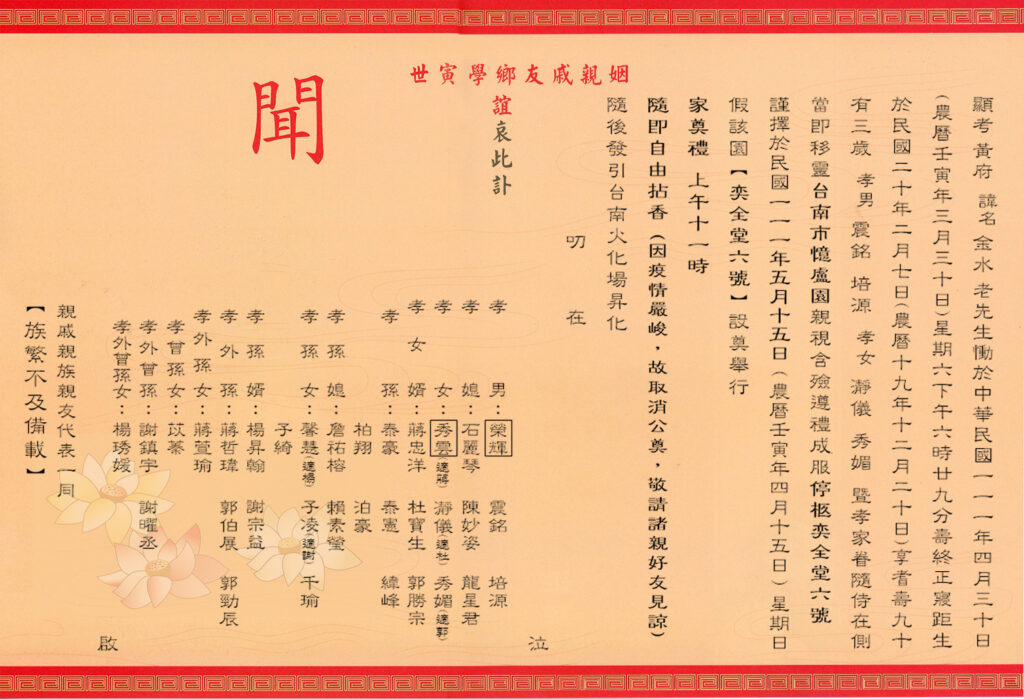 顯考黃府 諱名 金水 老先生慟於中華民國一一一年四月三十日
(農曆壬寅年三月三十日)星期六下午六時廿九分壽終正寢距生
於民國二十年二月七日(農曆十九年十二月二十日)享耆壽九十
有三歲 孝男 震銘 培源 孝女 瀞儀 秀媚 暨孝家眷隨侍在側
當即移靈台南市憶盧園親視含殮遵禮成服停柩奕全堂六號
謹擇於民國一一一年五月十五日(農曆壬寅年四月十五日)星期日
假該園【奕全堂六號】設奠舉行
家奠禮 上午十一時
隨即自由拈香(因疫情嚴峻，故取消公奠，敬請諸親好友見諒)
隨後發引台南火化場昇化
叨在
姻親戚友鄉學寅世
誼哀此訃
聞
泣
孝男：榮輝 震銘 培源
孝媳：石麗琴 陳妙姿 龍星君
孝女：秀雲(適蔣) 瀞儀(適杜) 秀媚(適郭)
孝女婿：蔣忠洋 杜寶生 郭勝宗
孝孫：泰豪 泰憲 緯峰
柏翔 泊豪
孝孫媳：詹祐榕 賴素瑩
孝孫女：馨慧(適楊) 子凌(適謝) 千瑜
子綺
孝孫婿：楊昇翰 謝宗益
孝外孫：蔣哲瑋 郭伯展 郭勁辰
孝外孫女：蔣萱瑜
孝曾孫女：苡蓁
孝外曾孫：謝鎮宇 謝曜丞
孝外曾孫女：楊琇媛
啟
親戚親族親友代表一同
【族繁不及備載】